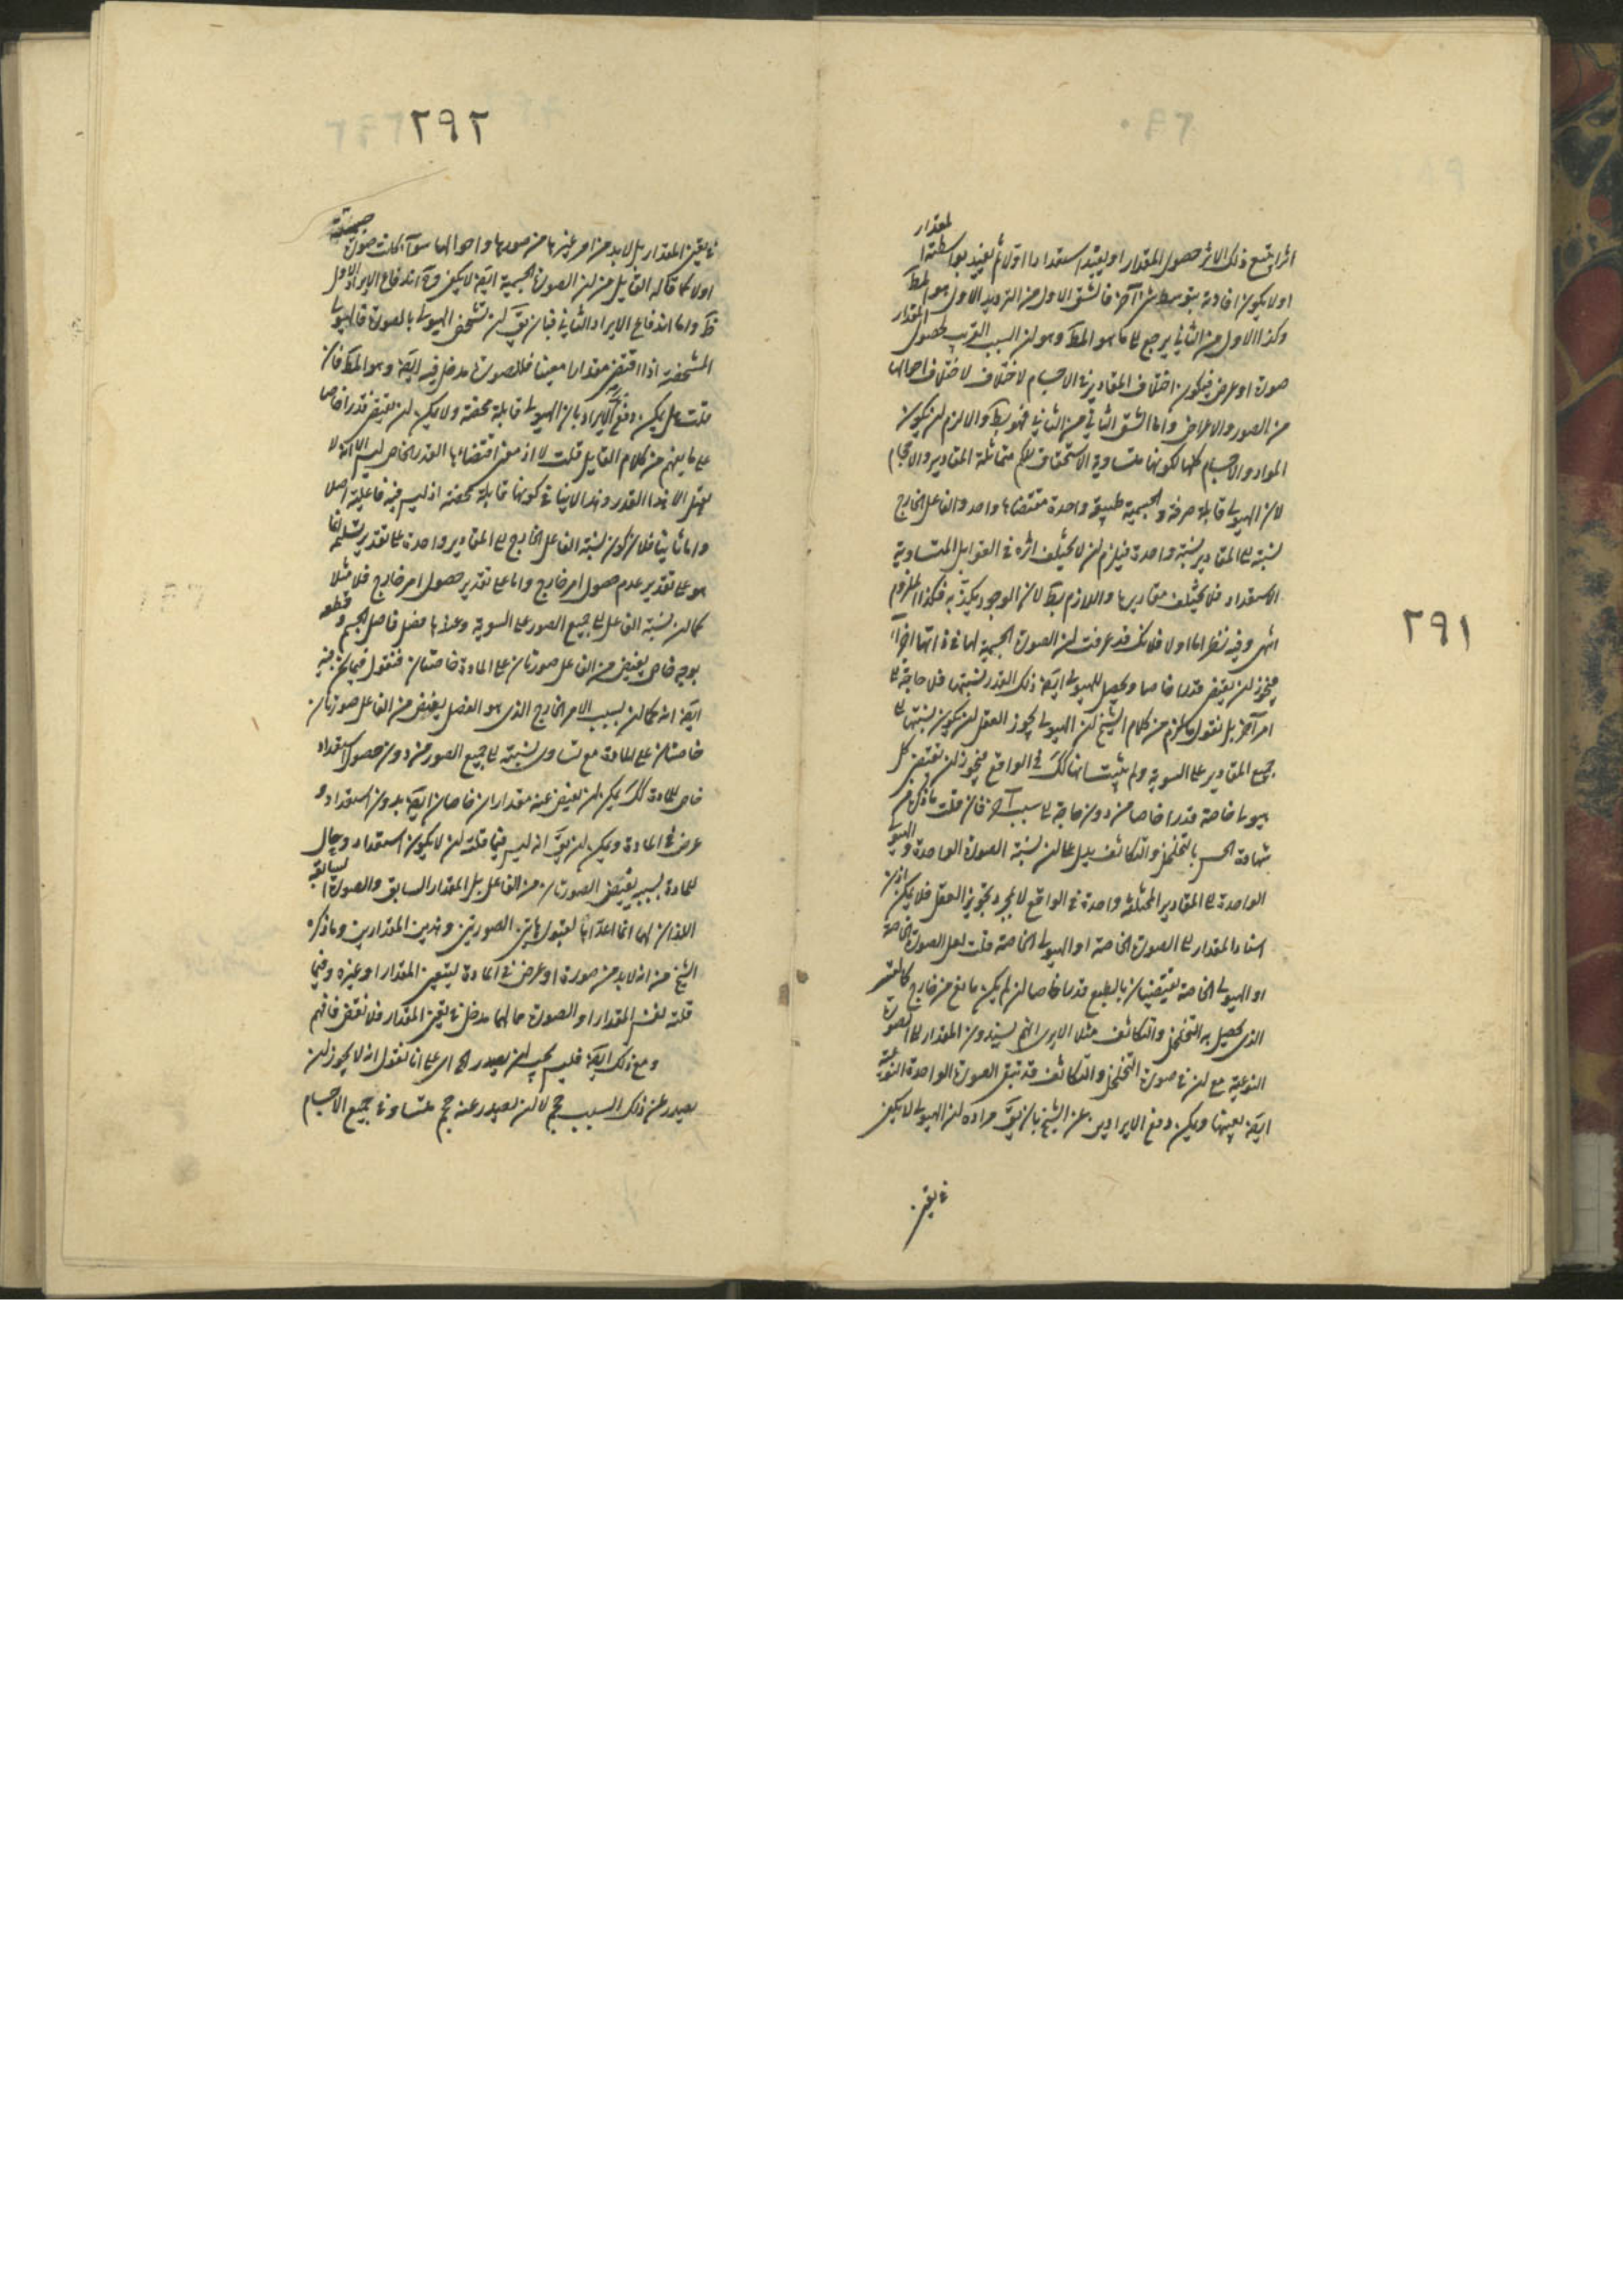 ٢٩١
اثرا يتبع ذلك الاثر حصول المقدار او يفيد استعدادا اولا ثم يفيد بواسطته المقدار
او لا يكون افادته بتوسط شئ آخر فالشق الاول من الترديد الاول هو المط
وكذا الاول من الثاني يرجع الى ما هو المط وهو ان السبب القريب لحصول المقدار
صورة او عرض فيكون اختلاف المقادير في الاجسام لاختلاف احوالها
من الصور والاعراض واما الشق الثاني من الثاني فهو بط والا لزم ان يكون
المواد والاجسام كلها لكونها متساوية الاستحقاق للكم متماثلة المقادير والاحجام
لان الهيولى قابلة صرفة والجسمية طبيعة واحدة مقتضاها واحد والفاعل الخارج
نسبته الى المقادير نسبة واحدة فيلزم ان لا يختلف اثره في القوابل المتساوية
الاستعداد فلا يختلف مقاديرها واللازم بط لان الوجود يكذبه فكذا الملزوم
انتهى وفيه نظر اما اولا فلانك قد عرفت ان الصورة الجسمية لها في ذاتها اجزاء
فيجوز ان يقتضي قدرا خاصا ويحصل للهيولى ايضا ذلك القدر بتبعيتها فلا حاجة الى
امر آخر بل نقول ما لزم من كلام الشيخ ان الهيولى يجوز العقل ان يكون نسبتها الى
جميع المقادير على السوية ولم يثبت انها كك في الواقع فيجوز ان تقتضي كل
هيولى خاصة قدرا خاصا من دون حاجة الى سبب آخر فان قلت ما ذكر من
شهادة الحس بالتخلخل والتكاثف يدل على ان نسبة الصورة الواحدة والهيولى
الواحدة الى المقادير المختلفة واحدة في الواقع لا بمجرد تجويز العقل فلا يمكن اذن
اسناد المقدار الى الصورة الخاصة او الهيولى الخاصة قلت لعل الصورة الخاصة
او الهيولى الخاصة تقتضيان بالطبع قدرا خاصا ان لم يكن مانع من خارج كالقسر
الذي يحصل به التخلخل والتكاثف مثلا الا يرى انهم يسندون المقدار الى الصورة
النوعية مع ان في صورة التخلخل والتكاثف قد تبقى الصورة الواحدة النوعية
ايضا بعينها ويمكن دفع الايرادين عن الشيخ بان يق مراده ان الهيولى لا يكفي
في تعين
٢٩٢
في تعين المقدار بل لا بد من امر غيرها من صورها واحوالها سواء كانت صورة جسمية
او لا كما قاله القايل من ان الصورة الجسمية ايضا لا يكفي وح اندفاع الايراد الاول
ظ واما اندفاع الايراد الثاني فبان يق ان تشخص الهيولى بالصورة فالهيولى
المشخصة اذا اقتضى مقدارا معينا فللصورة مدخل فيه ايضا وهو المط فان
قلت هل يمكن دفع الايراد بان الهيولى قابلة محضة ولا يمكن ان يقتضي قدرا خاصا
على ما يفهم من كلام القايل قلت لا اذ معنى اقتضائها القدر الخاص ليس الا انه لا
يقبل الا هذا القدر وهذا لا ينافي كونها قابلة محضة اذ ليس فيه فاعلية اصلا
واما ثانيا فلان كون نسبة الفاعل الخارج الى المقادير واحدة على تقدير تسليمه انما
هو على تقدير عدم حصول امر خارج واما على تقدير حصول امر خارج فلا مثلا
كما ان نسبة الفاعل الى جميع الصور على السوية وعندها فصل فاصل الجسم وقطعه
بوجه خاص يفيض من الفاعل صورتان على المادة خاصتان فنقول فيما نحن فيه
ايضا انه كما ان بسبب الامر الخارج الذي هو الفصل يفيض من الفاعل صورتان
خاصتان على المادة مع تساوي نسبته الى جميع الصور من دون حصول استعداد
خاص للمادة كك يمكن ان يفيض عنه مقداران خاصان ايضا بدون استعداد و
عرض في المادة ويمكن ان يق انه ليس فيما قلته ان لا يكون استعداد وحال
للمادة بسببه يفيض الصورتان من الفاعل بل المقدار السابق والصورة السابقة
اللذان لهما انما اعداها لقبول هاتين الصورتين وهذين المقدارين وما ذكره
الشيخ من انه لا بد من صورة او عرض في المادة ليتعين المقدار او غيره وفيما
قلته نفس المقدار او الصورة حالهما مدخل في تعين المقدار فلا نقض فافهم
ومع ذلك ايضا فليس يجب ان يصدر اه اي على انا نقول انه لا يجوز ان
يصدر عن ذلك السبب حجم لا ان يصدر عنه حجم متساو في جميع الاجسام